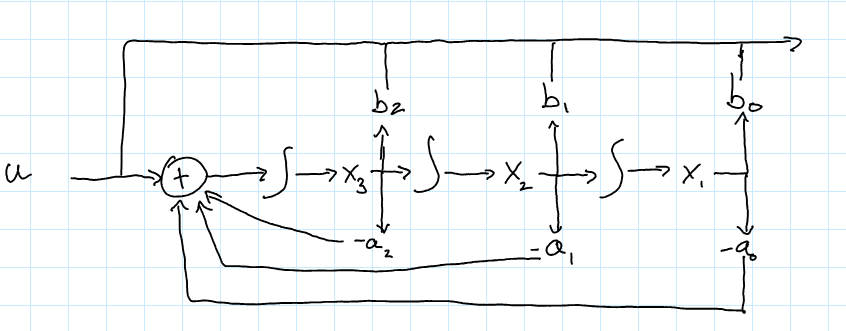 b₂ b₁ b₀
u + ∫ x₃ ∫ x₂ ∫ x₁
-a₂ -a₁ -a₀